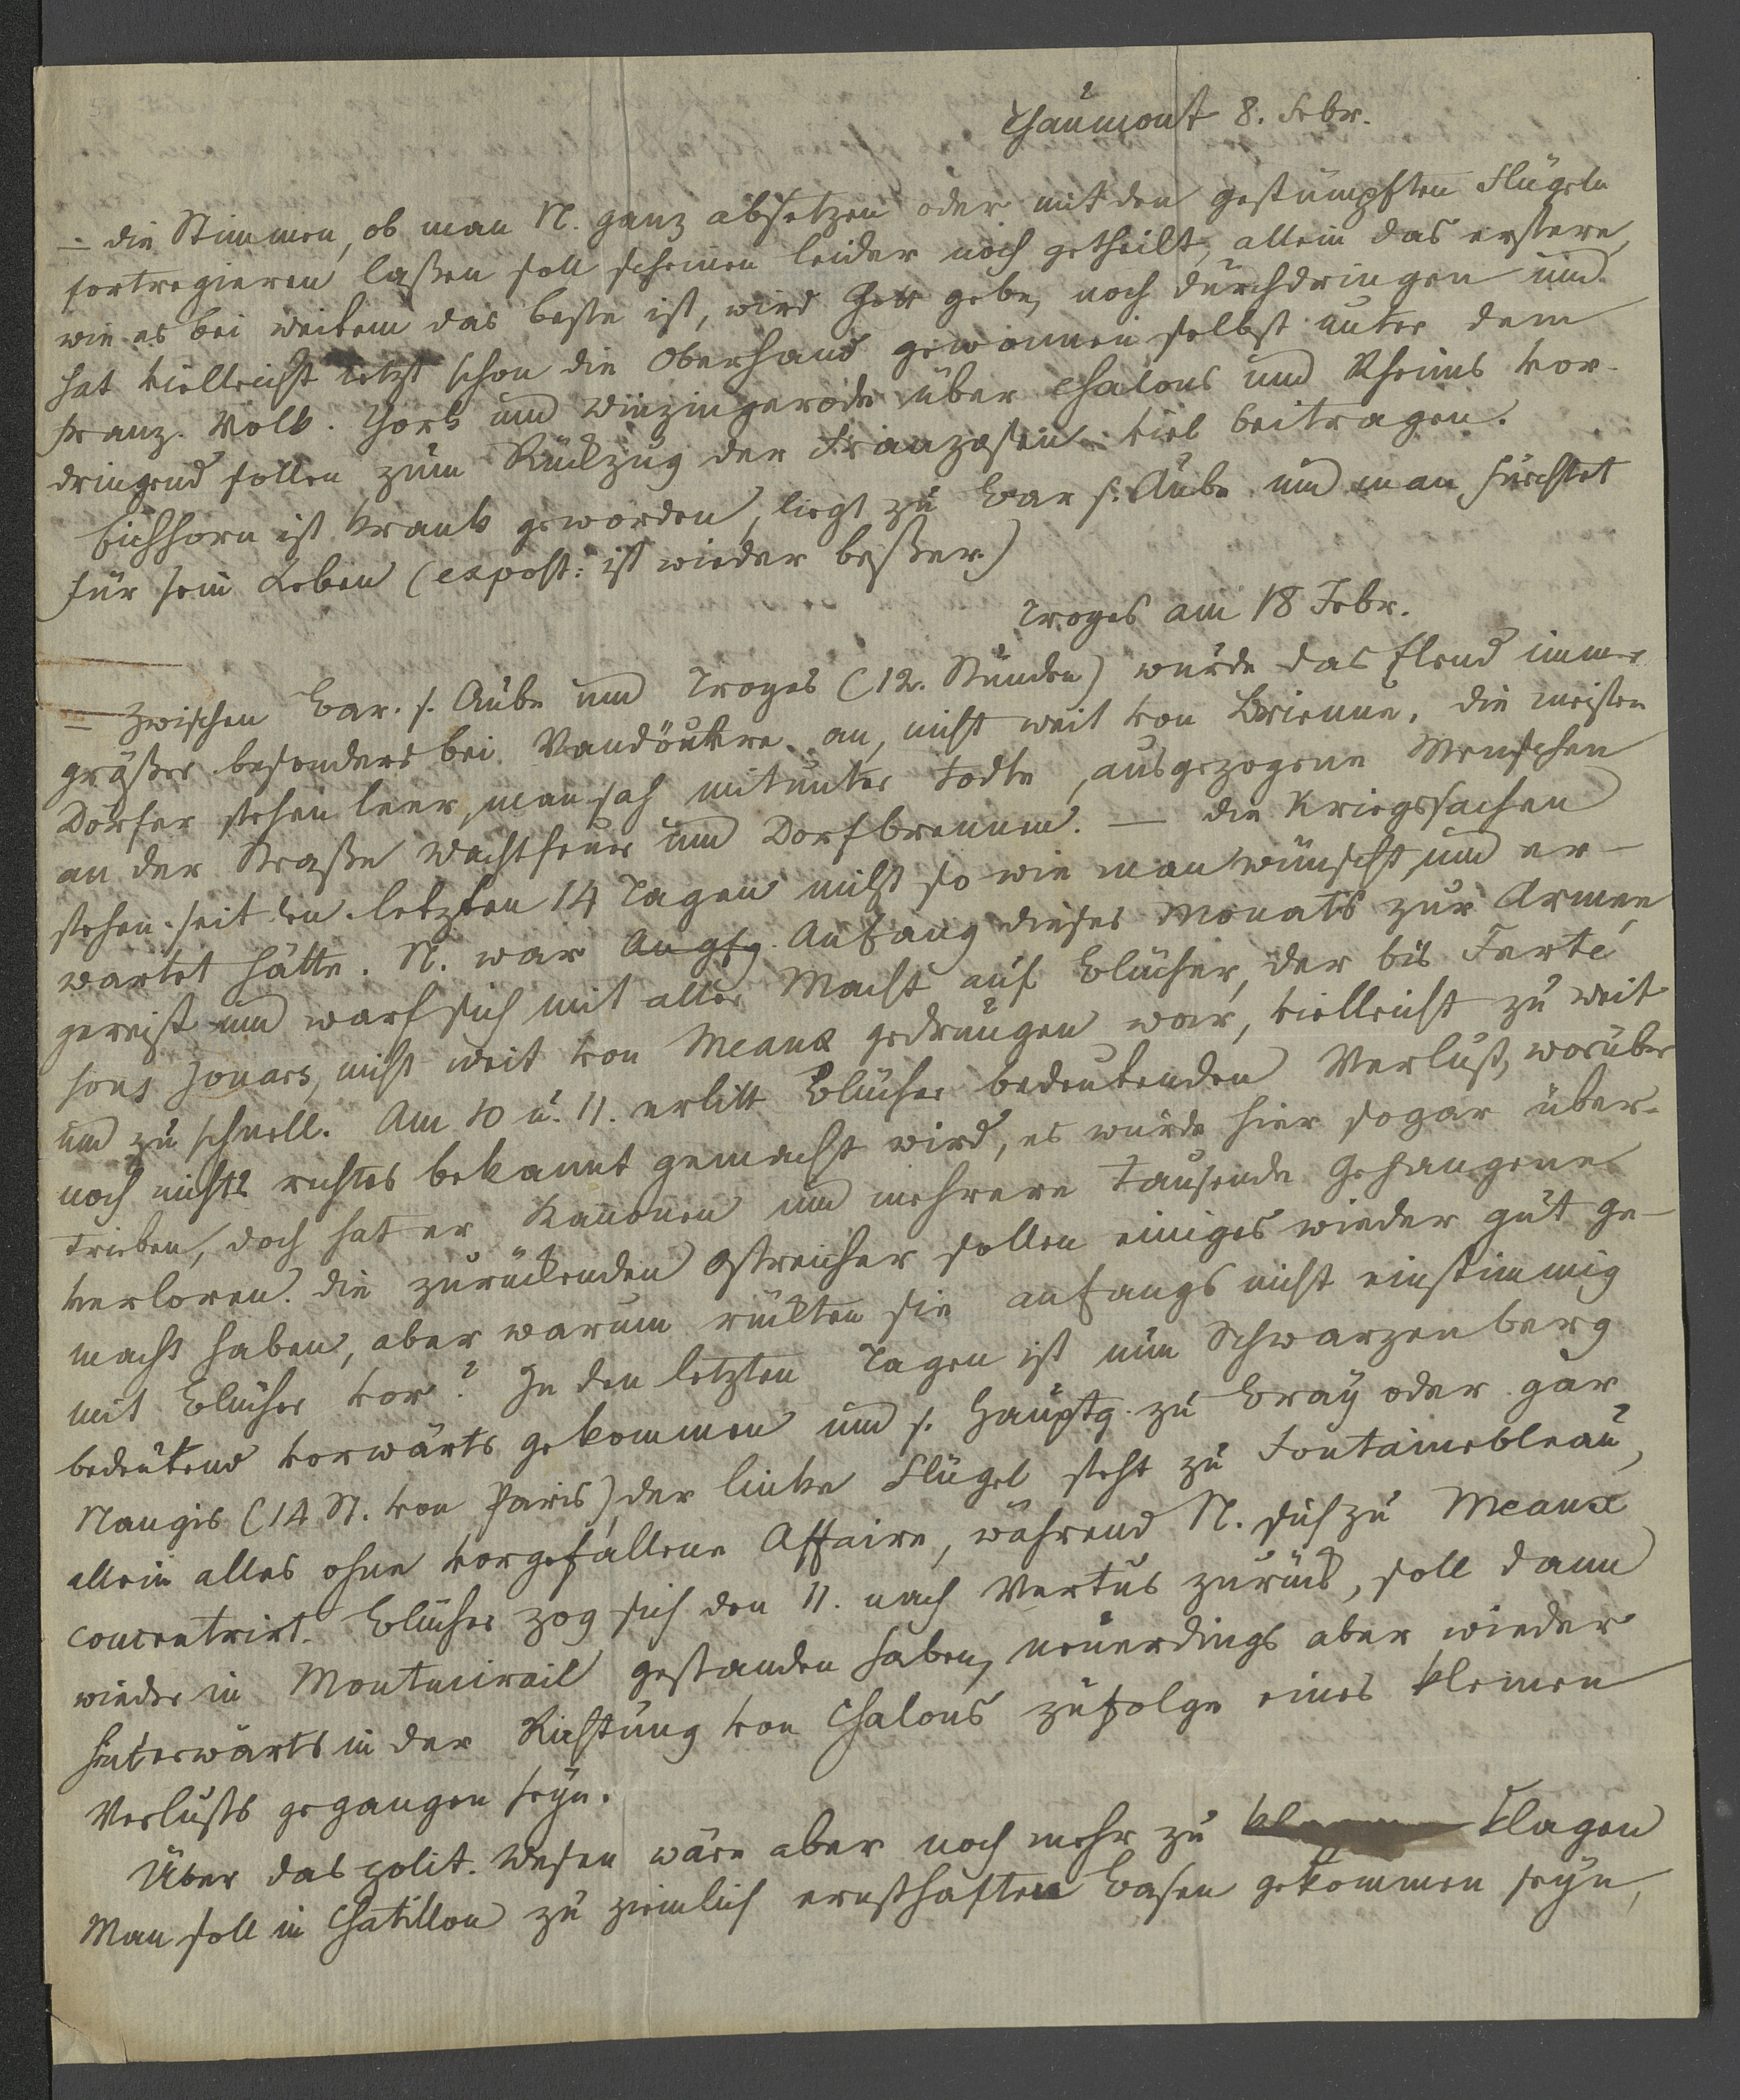 Chaumont 8. Febr.
= die Stimmen, ob man N. ganz absetzen oder mit den gestümpften Flügeln
fortregieren laßen soll scheinen leider noch getheilt, allein das erstere,
wie es bei weitem das beste ist, wird Gott gebe, noch durchdringen und
hat vielleicht letzt schon die Oberhand gewonnen selbst unter dem
franz. Volk. York und Winzingerode über Chalons und Rheims vor-
dringend sollen zum Rückzug der Franzosen viel beitragen.
Eichhorn ist krank geworden, liegt zu Bar s. Aube und man fürchtet
für sein Leben (expost: ist wieder beßer)
Troyes am 18 Febr.
= Zwischen Bar. s. Aube und Troyes (12. Stunden) wurde das Elend immer
größer besonders bei Vandöuvre an, nicht weit von Brienne, die meisten
Dörfer stehen leer, man sah mitunter todte, ausgezogene Menschen
an der Straße Wachtfeuer und Dorfbrennen. — die Kriegssachen
stehen seit den letzten 14 Tagen nicht so wie man wünscht, und er-
wartet hätte. N. war Angfg. Anfang dieses Monats zur Armee
gereist und warf sich mit aller Macht auf Blücher, der bis Ferté
sous Jouars, nicht weit von Meaux gedrungen war, vielleicht zu weit
und zu schnell. Am 10 u. 11. erlitt Blücher bedeutenden Verlust, worüber
noch nichts rechtes bekannt gemacht wird, es wurde hier sogar über-
trieben, doch hat er Kanonen und mehrere tausende Gefangene
verloren. die zurückenden Östreicher sollen einiges wieder gut ge-
macht haben, aber warum rückten sie anfangs nicht einstimmig
mit Blücher vor? In den letzten Tagen ist nun Schwarzenberg
bedeutend vorwärts gekommen und s. Hauptq. zu Bray oder gar
Nangis (14 St. von Paris), der linke Flügel steht zu Fontainebleau,
allein alles ohne vorgefallene Affaire, während N. sich zu Meaux
concentrirt. Blücher zog sich den 11. nach Vertus zurück, soll dann
wieder in Montmirail gestanden haben, neuerdings aber wieder
hinterwärts in der Richtung von Chalons zufolge eines kleinen
Verlusts gegangen seyn.
Über das polit. Wesen wäre aber noch mehr zu klagen
Man soll in Chatillon zu ziemlich ernsthaften Basen gekommen seyn,